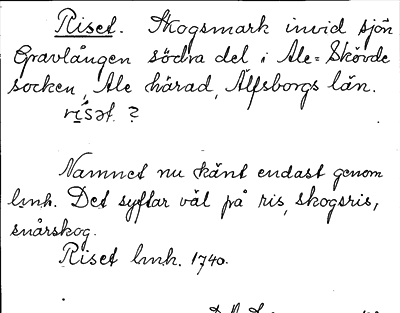 Riset. Skogsmark invid sjön
Gravlångens södra del i Ale-Skövde
socken, Ale härad, Älfsborgs län.
rìsət ?
Namnet nu känt endast genom
lmh. Det syftar väl på ris, skogsris,
snårskog.
Riset lmh. 1740.